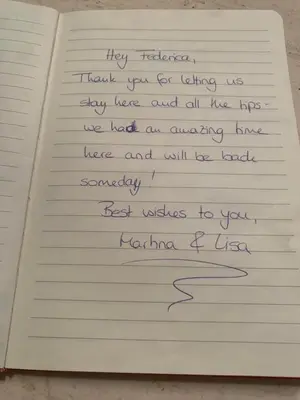 Hey Federica,
Thank you for letting us
stay here and all the tips.
we had an amazing time
here and will be back
someday!
Best wishes to you,
Martina & Lisa